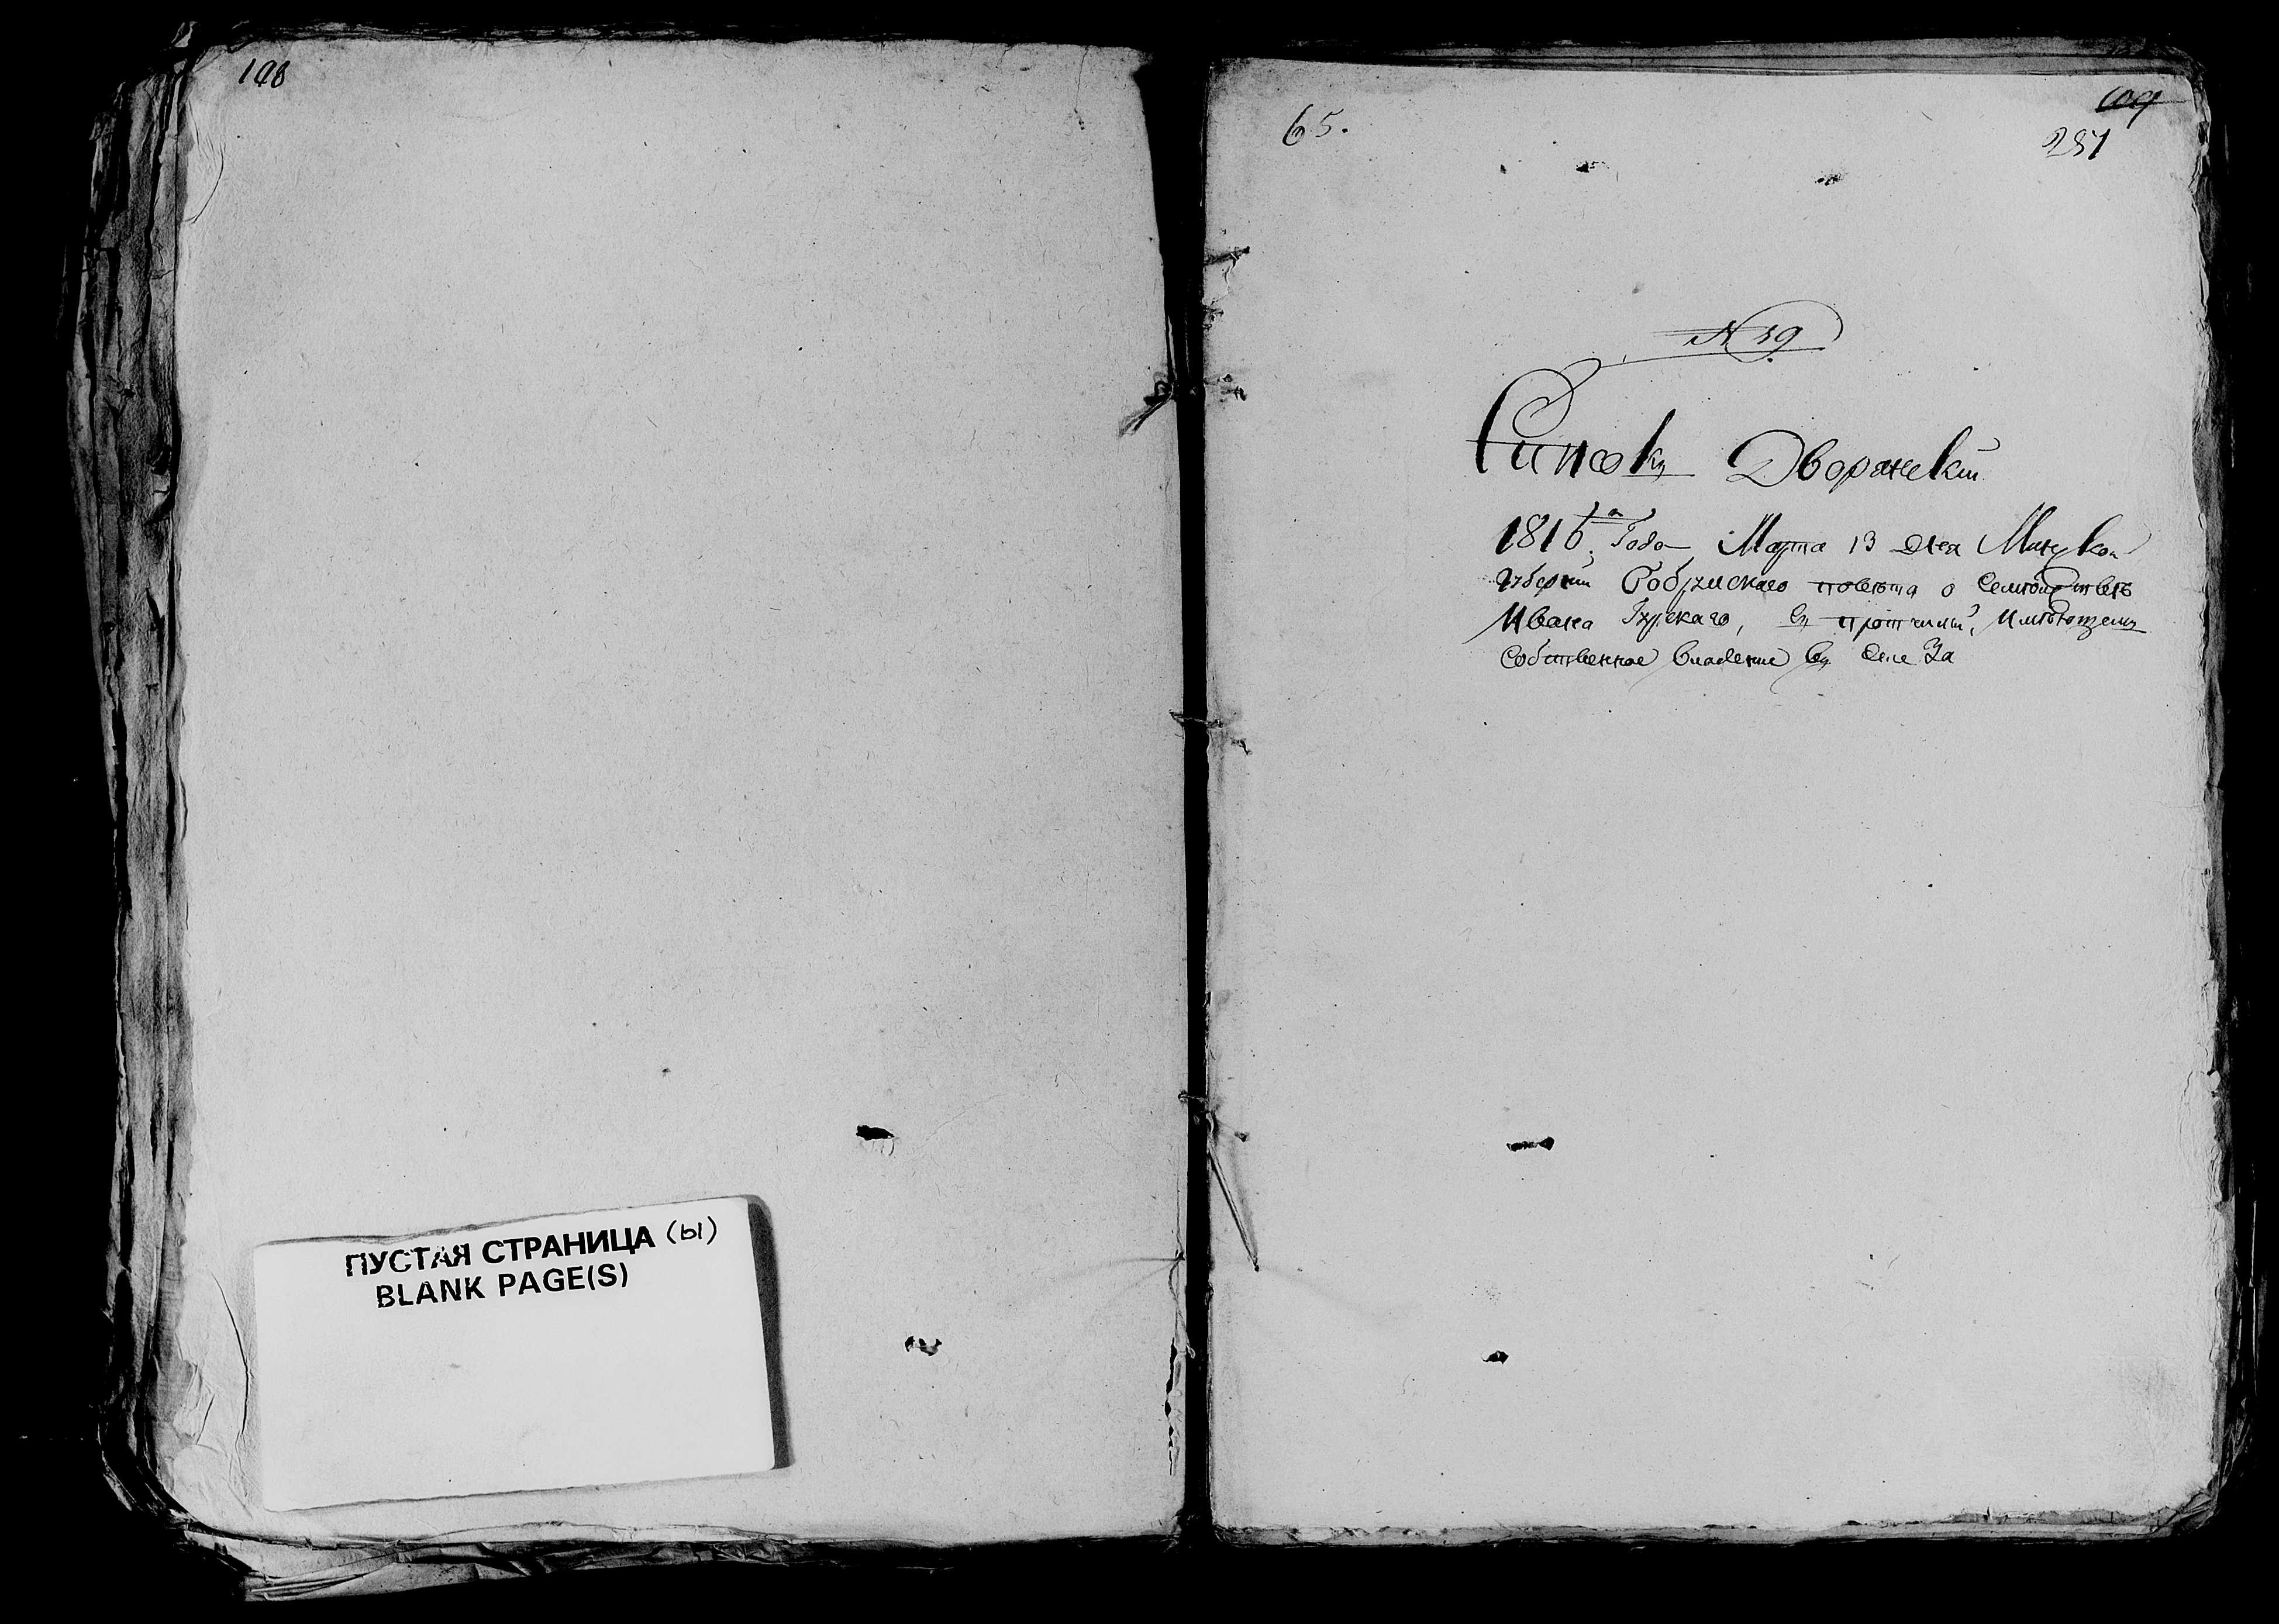 108
ПУСТАЯ СТРАНИЦА (ы)
BLANK PAGE(S)
65.
109
251
N 59
Списокъ Дворянскій
1816го Года Марта 13 дня Минской
губерніи Бобруискаго повѣта о Семѣйствѣ
Ивана Гурскаго, съ протчими, Имѣющемъ
Собственное владение въ